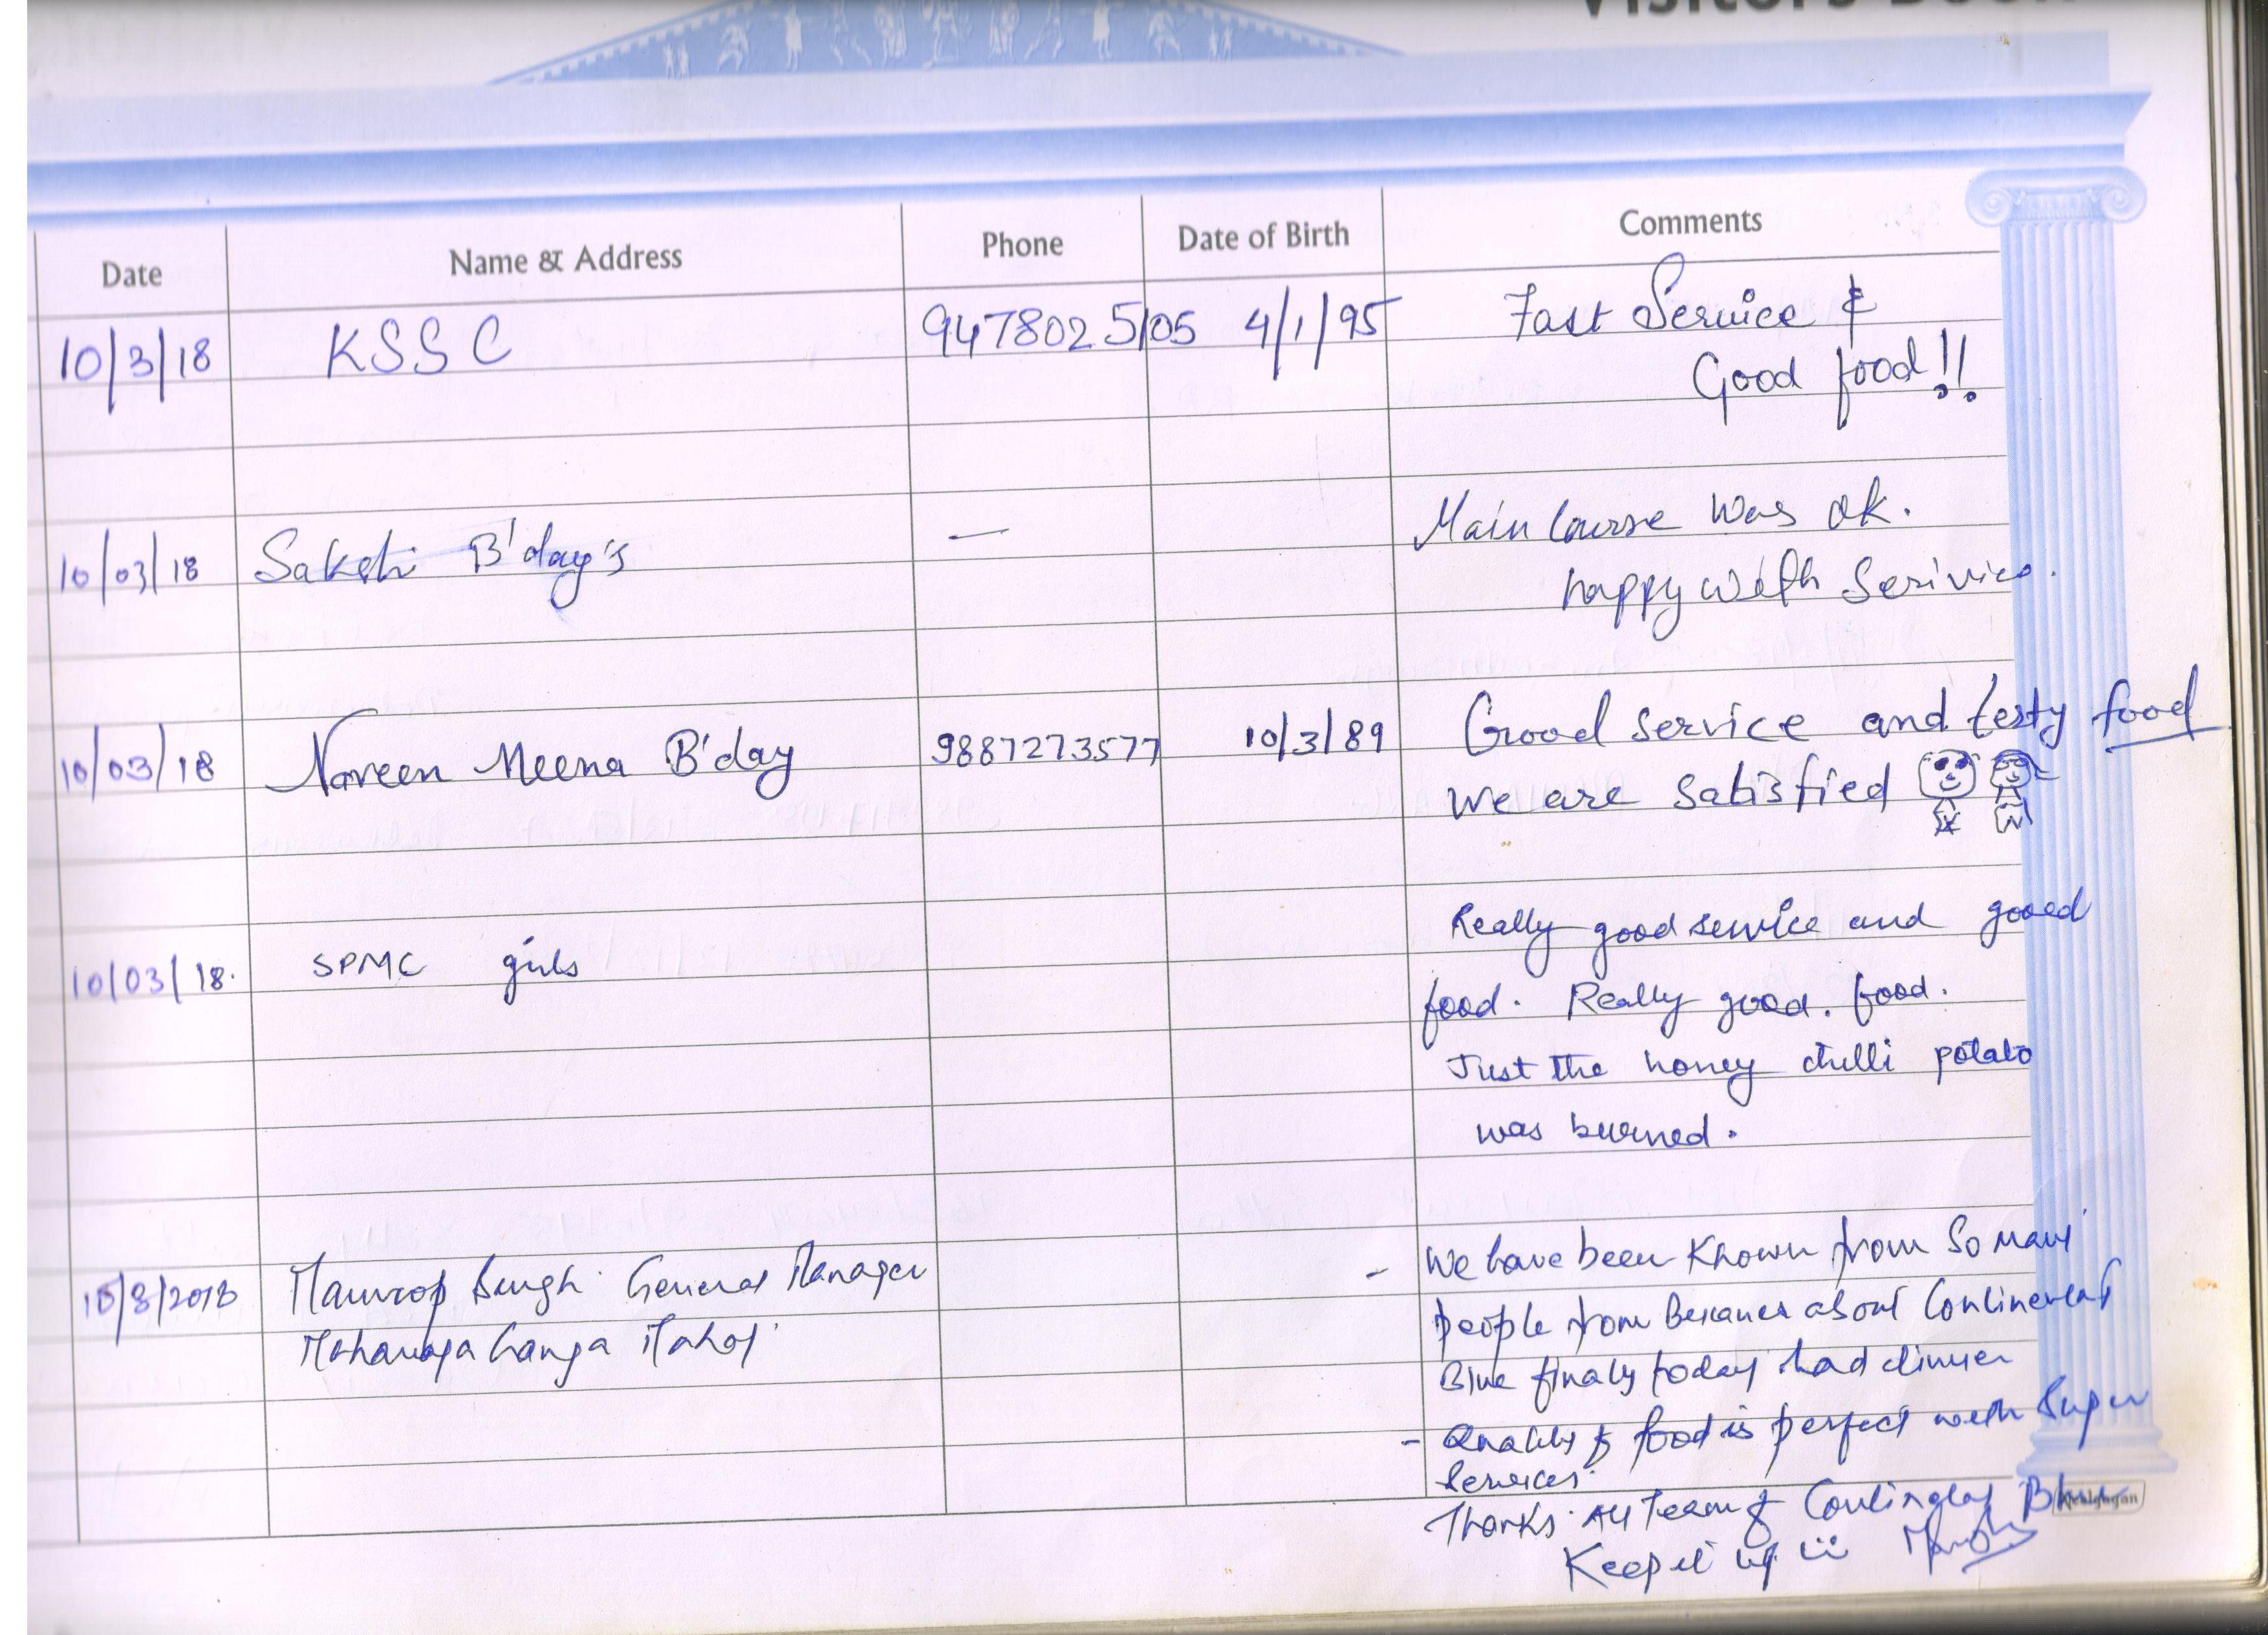 Visitors Book
Date Name & Address Phone Date of Birth Comments
10/3/18 KSSC 9478025105 4/1/95 Fast Service &
Good food!!
10/03/18 Sakshi B'day's — Main Course was ok.
happy with Serivice.
10/03/18 Naveen Meena B'day 9887273577 10/3/89 Good service and testy food
we are satisfied
10/03/18. SPMC girls Really good service and good
food. Really good. food.
Just the honey chilli potato
was burned.
10/3/2018 Singh General Manager - We have been known from so many
people from Bikaner about Continental
Maharaja Ganga Mahal
Blue finaly today had dinner
- Quality of food is perfect with super
services.
Thanks. All Team of Blue
Keep it up